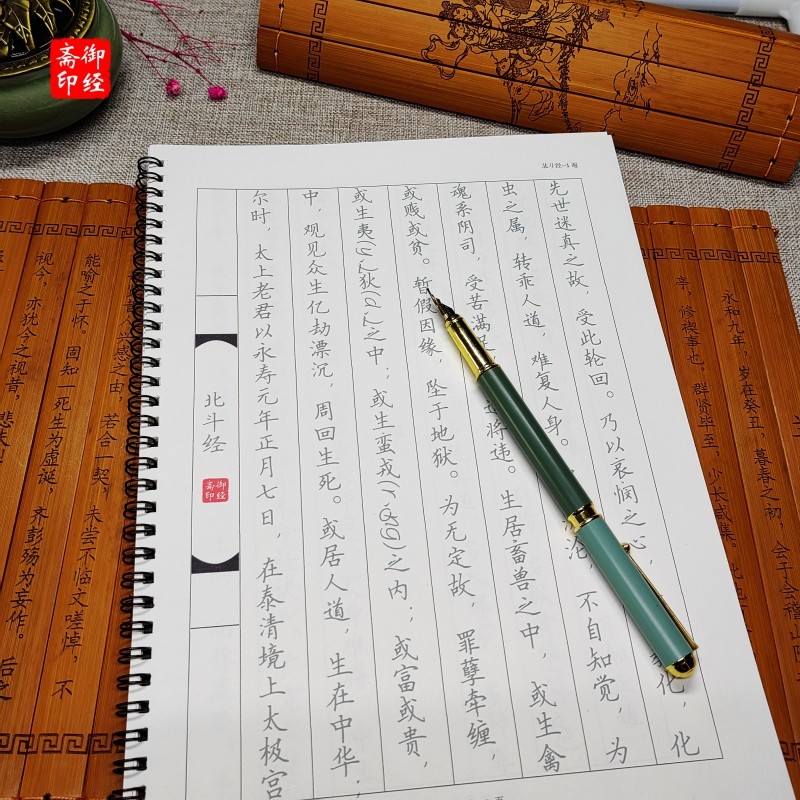 御经
斋印
北斗经-1遍
北斗经
御经
斋印
尔时，太上老君以永寿元年正月七日，在泰清境上太极宫
中，观见众生亿劫漂沉，周回生死。或居人道，生在中华；
或生夷(yí)狄(dí)之中；或生蛮戎(róng)之内；或富或贵，
或贱或贫。暂假因缘，坠于地狱。为无定故，罪孽牵缠，
魂系阴司，受苦满 道将违。生居畜兽之中，或生禽
虫之属，转乖人道，难复人身。 沦，不自知觉，为
先世迷真之故，受此轮回。乃以哀悯之心， 化，化
永和九年，岁在癸丑，暮春之初，会于会稽山
亭，修禊事也。群贤毕至，少长咸集。
兴感之由，若合一契，未尝不临文嗟悼，不
能喻之于怀。固知一死生为虚诞，齐彭殇为妄作。后之
视今，亦犹今之视昔，